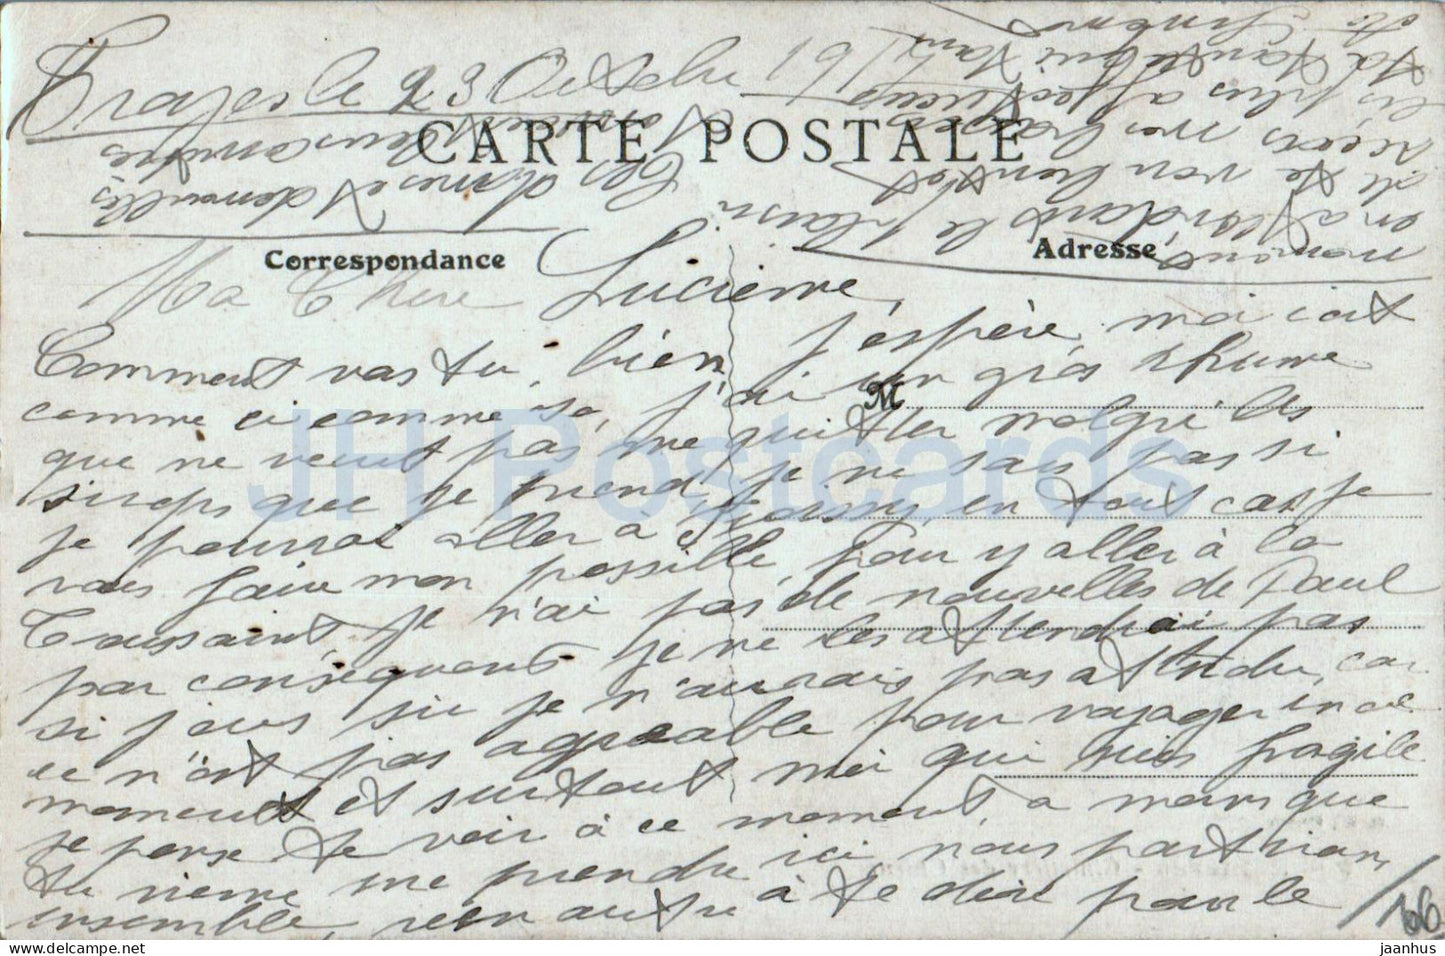 Trajes le 23 Octobre 1917
CARTE POSTALE
Correspondance
Adresse
M
Ma Chère Lucienne,
Comment vas tu, bien j'espère, moi c'est
comme ci comme ça, j'ai un gros rhume
que ne veut pas me quitter malgré les
sirops que je prend, je ne sais pas si
je pourrai aller à en tout cas je
vais faire mon possible pour y aller à la
Toussaint, je n'ai pas de nouvelles de Paul
par conséquent je ne les attendrai pas
si j'avais su je n'aurais pas attendu, car
ce n'est pas agréable pour voyager en ce
moment et surtout moi qui suis fragile
je pense te voir à ce moment, a moins que
tu vienne me prendre ici nous partirions
ensemble, rien autre à te dire pour le
moment
en attendant le plaisir
de te voir bientôt
reçois mes baisers
les plus affectueux
Ta
donne des nouvelles
166
JH Postcards
jaanhus — delcampe.net